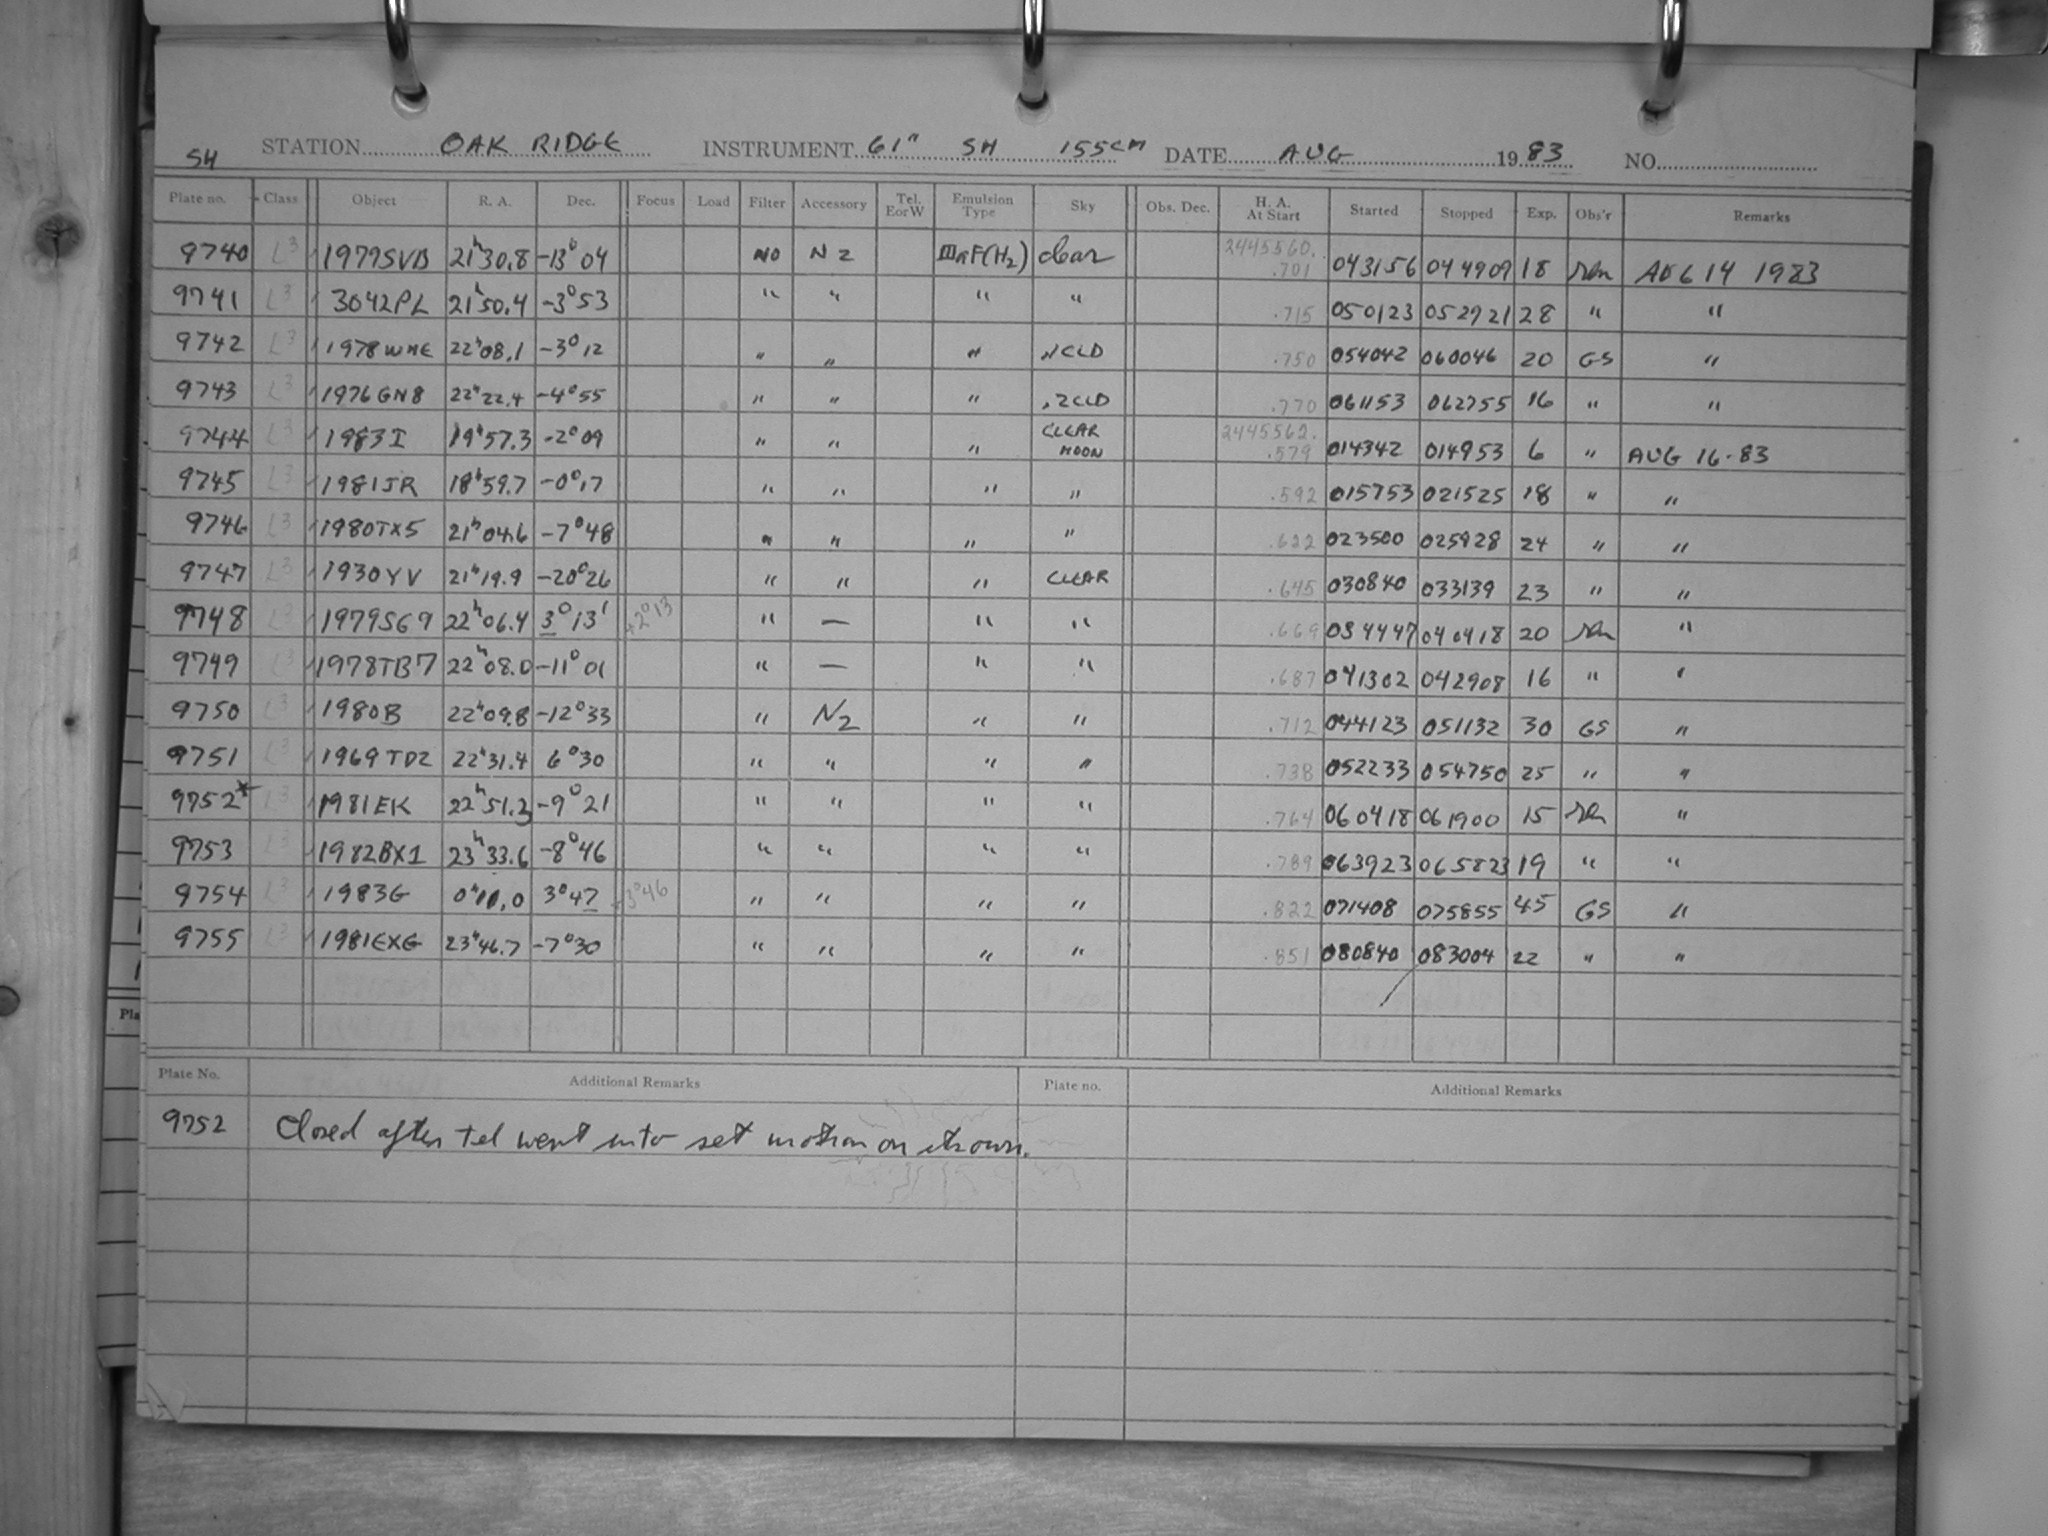 SH STATION OAK RIDGE INSTRUMENT 61" SH 155cm DATE AUG 1983 NO.
Plate no. Class Object R. A. Dec. Focus Load Filter Accessory Tel. EorW Emulsion Type Sky Obs. Dec. H. A. At Start Started Stopped Exp. Obs'r Remarks
9740 L3 1979SVB 21h30.8 -13°04 NO N2 IIIaF(H2) clear 2445560. .701 043156 044909 18 AUG 14 1983
9741 L3 3042PL 21h50.4 -3°53 " " " " .715 050123 052921 28 " "
9742 L3 1978WME 22h08.1 -3°12 " " " .1CLD .750 054042 060046 20 GS "
9743 L3 1976GN8 22h22.4 -4°55 " " " .2CLD .770 061153 062755 16 " "
9744 L3 1983I 19h57.3 -2°09 " " " CLEAR MOON 2445562. .579 014342 014953 6 " AUG 16-83
9745 L3 1981JR 18h59.7 -0°17 " " " " .592 015753 021525 18 " "
9746 L3 1980TX5 21h04.6 -7°48 " " " " .622 023500 025928 24 " "
9747 L3 1930YV 21h19.9 -20°26 " " " CLEAR .645 030840 033139 23 " "
9748 L3 1979SG9 22h06.4 3°13' +2°13 " — " " .669 034447 040418 20 "
9749 L3 1978TB7 22h08.0 -11°01 " — " " .687 041302 042908 16 " "
9750 L3 1980B 22h09.8 -12°33 " N2 " " .712 044123 051132 30 GS "
9751 L3 1969TD2 22h31.4 6°30 " " " " .738 052233 054750 25 " "
9752* L3 1981EK 22h51.2 -9°21 " " " " .764 060418 061900 15 "
9753 L3 1982BX1 23h33.6 -8°46 " " " " .789 063923 065823 19 " "
9754 L3 1983G 0h11.0 3°47 +3°46 " " " " .822 071408 075855 45 GS "
9755 L3 1981EXG 23h46.7 -7°30 " " " " .851 080840 083004 22 " "
Plate No. Additional Remarks Plate no. Additional Remarks
9752 Closed after tel went into set motion on its own.